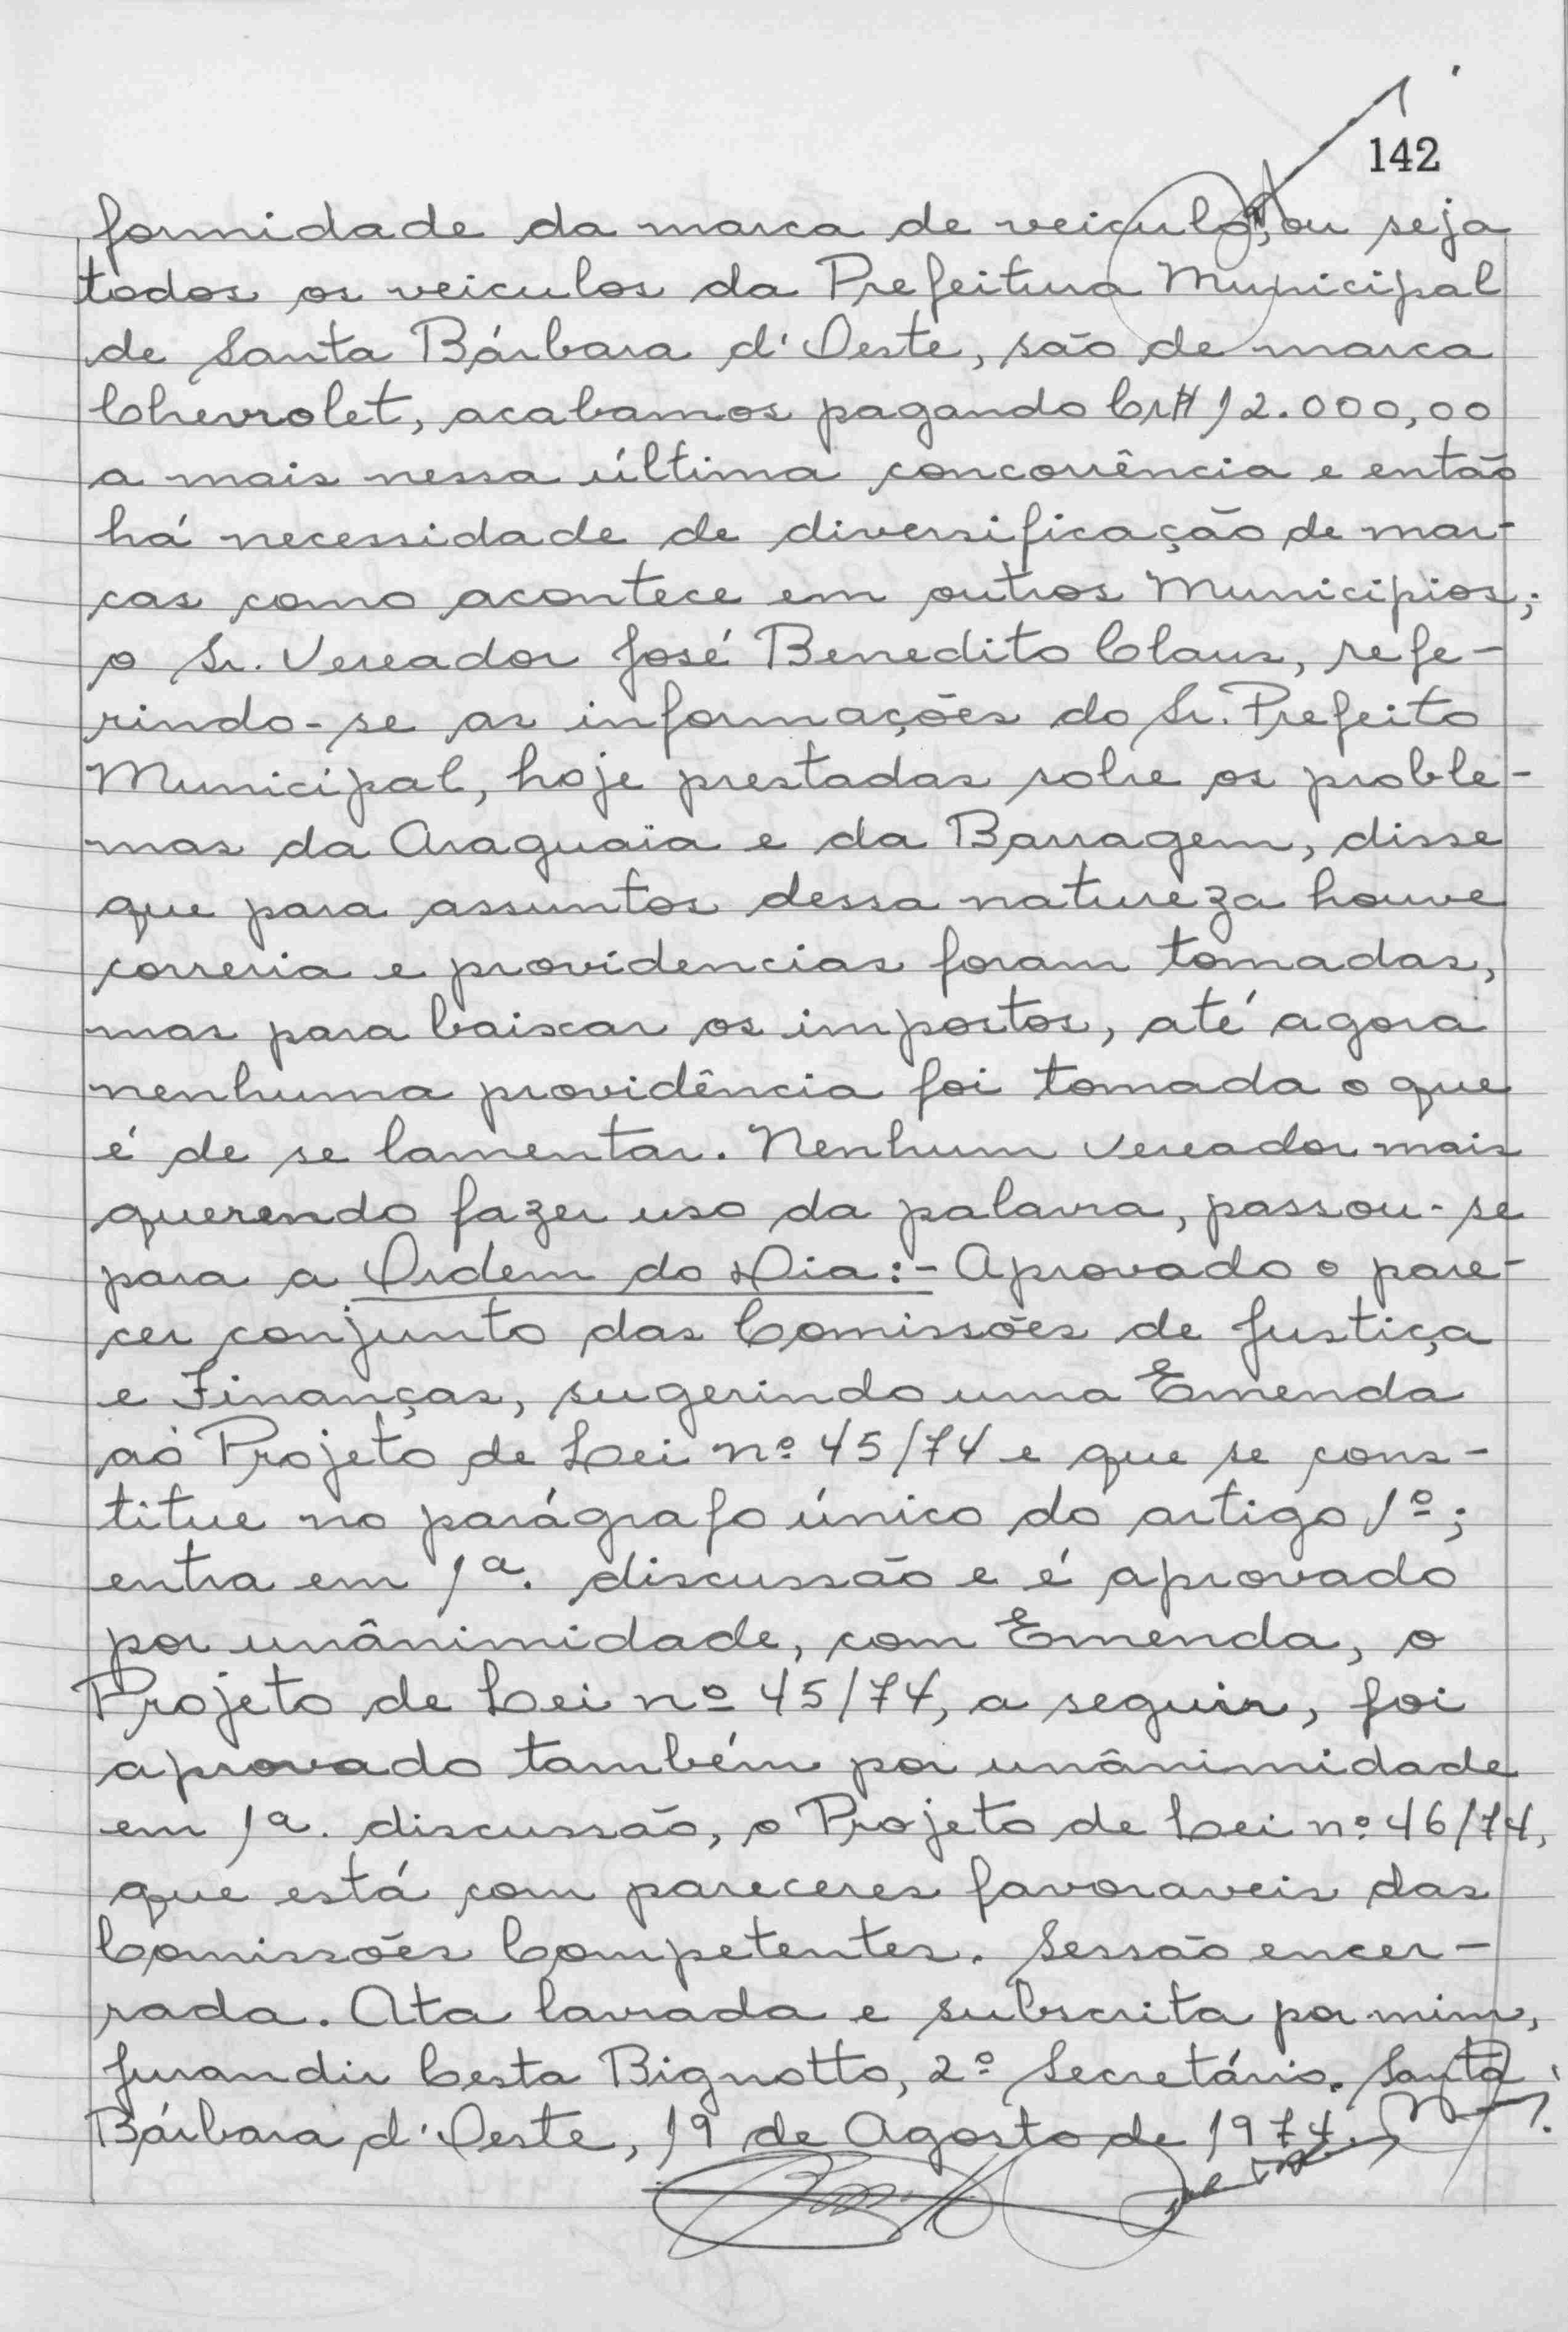 142
formidade da marca de veiculo, ou seja
todos os veiculos da Prefeitura Municipal
de Santa Bárbara d'Oeste, são de marca
Chevrolet, acabamos pagando Cr$ 12.000,00
a mais nessa última concorrência e então
há necessidade de diversificação de mar-
cas como acontece em outros Municipios;
o Sr. Vereador José Benedito Claus, refe-
rindo-se as informações do Sr. Prefeito
Municipal, hoje prestadas sobre os proble-
mas da Araguaia e da Barragem, disse
que para assuntos dessa natureza houve
correria e providencias foram tomadas,
mas para baixar os impostos, até agora
nenhuma providência foi tomada o que
é de se lamentar. Nenhum vereador mais
querendo fazer uso da palavra, passou-se
para a Ordem do Dia:- Aprovado o pare-
cer conjunto das Comissões de Justiça
e Finanças, sugerindo uma Emenda
ao Projeto de Lei nº 45/74 e que se cons-
titue no parágrafo único do artigo 1º;
entra em 1ª. discussão e é aprovado
por unânimidade, com Emenda, o
Projeto de Lei nº 45/74, a seguir, foi
aprovado também por unânimidade
em 1ª. discussão, o Projeto de Lei nº 46/74,
que está com pareceres favoraveis das
Comissões Competentes. Sessão encer-
rada. Ata lavrada e subscrita por mim,
Jurandir Cesta Bignotto, 2º Secretário. Santa
Bárbara d'Oeste, 19 de Agosto de 1974.